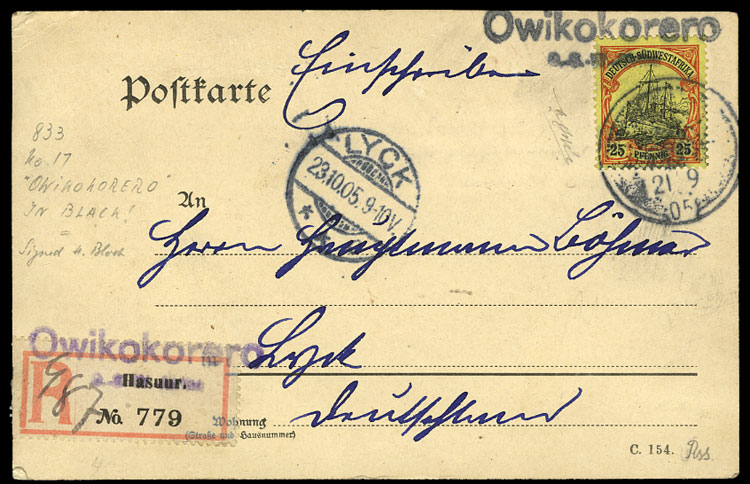 Owikokorero
Einschreiben
DEUTSCH-SÜDWESTAFRIKA
25 PFENNIG 25
Poſtkarte
LYCK
23.10.05.9-10V.
*
21 9
05
833
No. 17
"OWIKOKORERO"
IN BLACK!
=
Signed H. Bloch
An
Herrn Hauptmann Böhmer
Owikokorero
in
Lyck
R
Hasuur.
No. 779
987
Wohnung
(Straße und Hausnummer)
Deutschland
C. 154.
4